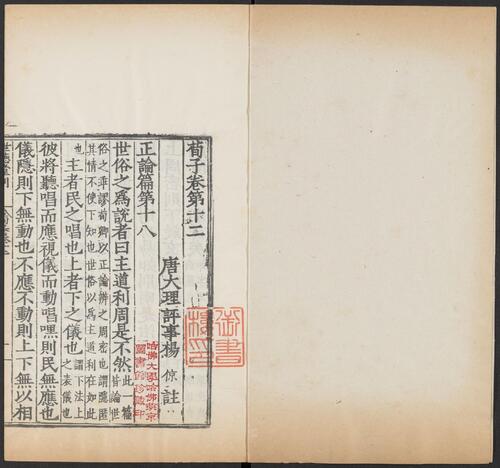 荀子卷第十二
唐大理評事楊 倞 註
正論篇第十八
世俗之爲說者曰主道利周是不然此篇皆論世
俗之乖謬荀卿以正論辨之周密也謂隱匿
其情不使下知也世俗以爲主道利在如此
也主者民之唱也上者下之儀也謂下法上之表儀也
彼將聽唱而應視儀而動唱嘿則民無應也
儀隱則下無動也不應不動則上下無以相
哈佛大學哈佛燕京
圖書館珍藏印
御書